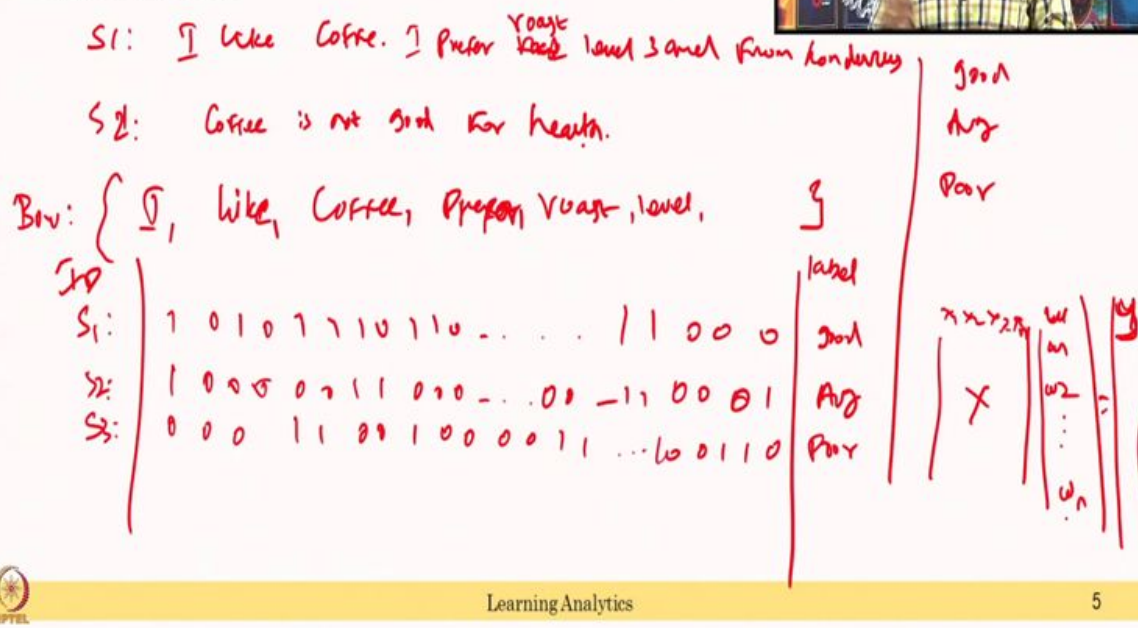 S1: I like Coffee. I Prefer roast level 3 and from honduras
S2: Coffee is not good for health.
good
Avg
Poor
BOW: { I, like, Coffee, Prefer, roast, level, }
ID
label
S1: 1 0 1 0 1 1 1 0 1 1 0 - . . . . 1 1 0 0 0 good
S2: 1 0 0 0 0 0 1 1 0 0 0 - . . . 0 0 - 1 1 0 0 0 1 Avg
S3: 0 0 0 1 1 0 0 1 0 0 0 0 1 1 ... 1 0 0 1 1 0 Poor
X
w1
w2
:
wn
=
y
Learning Analytics
5